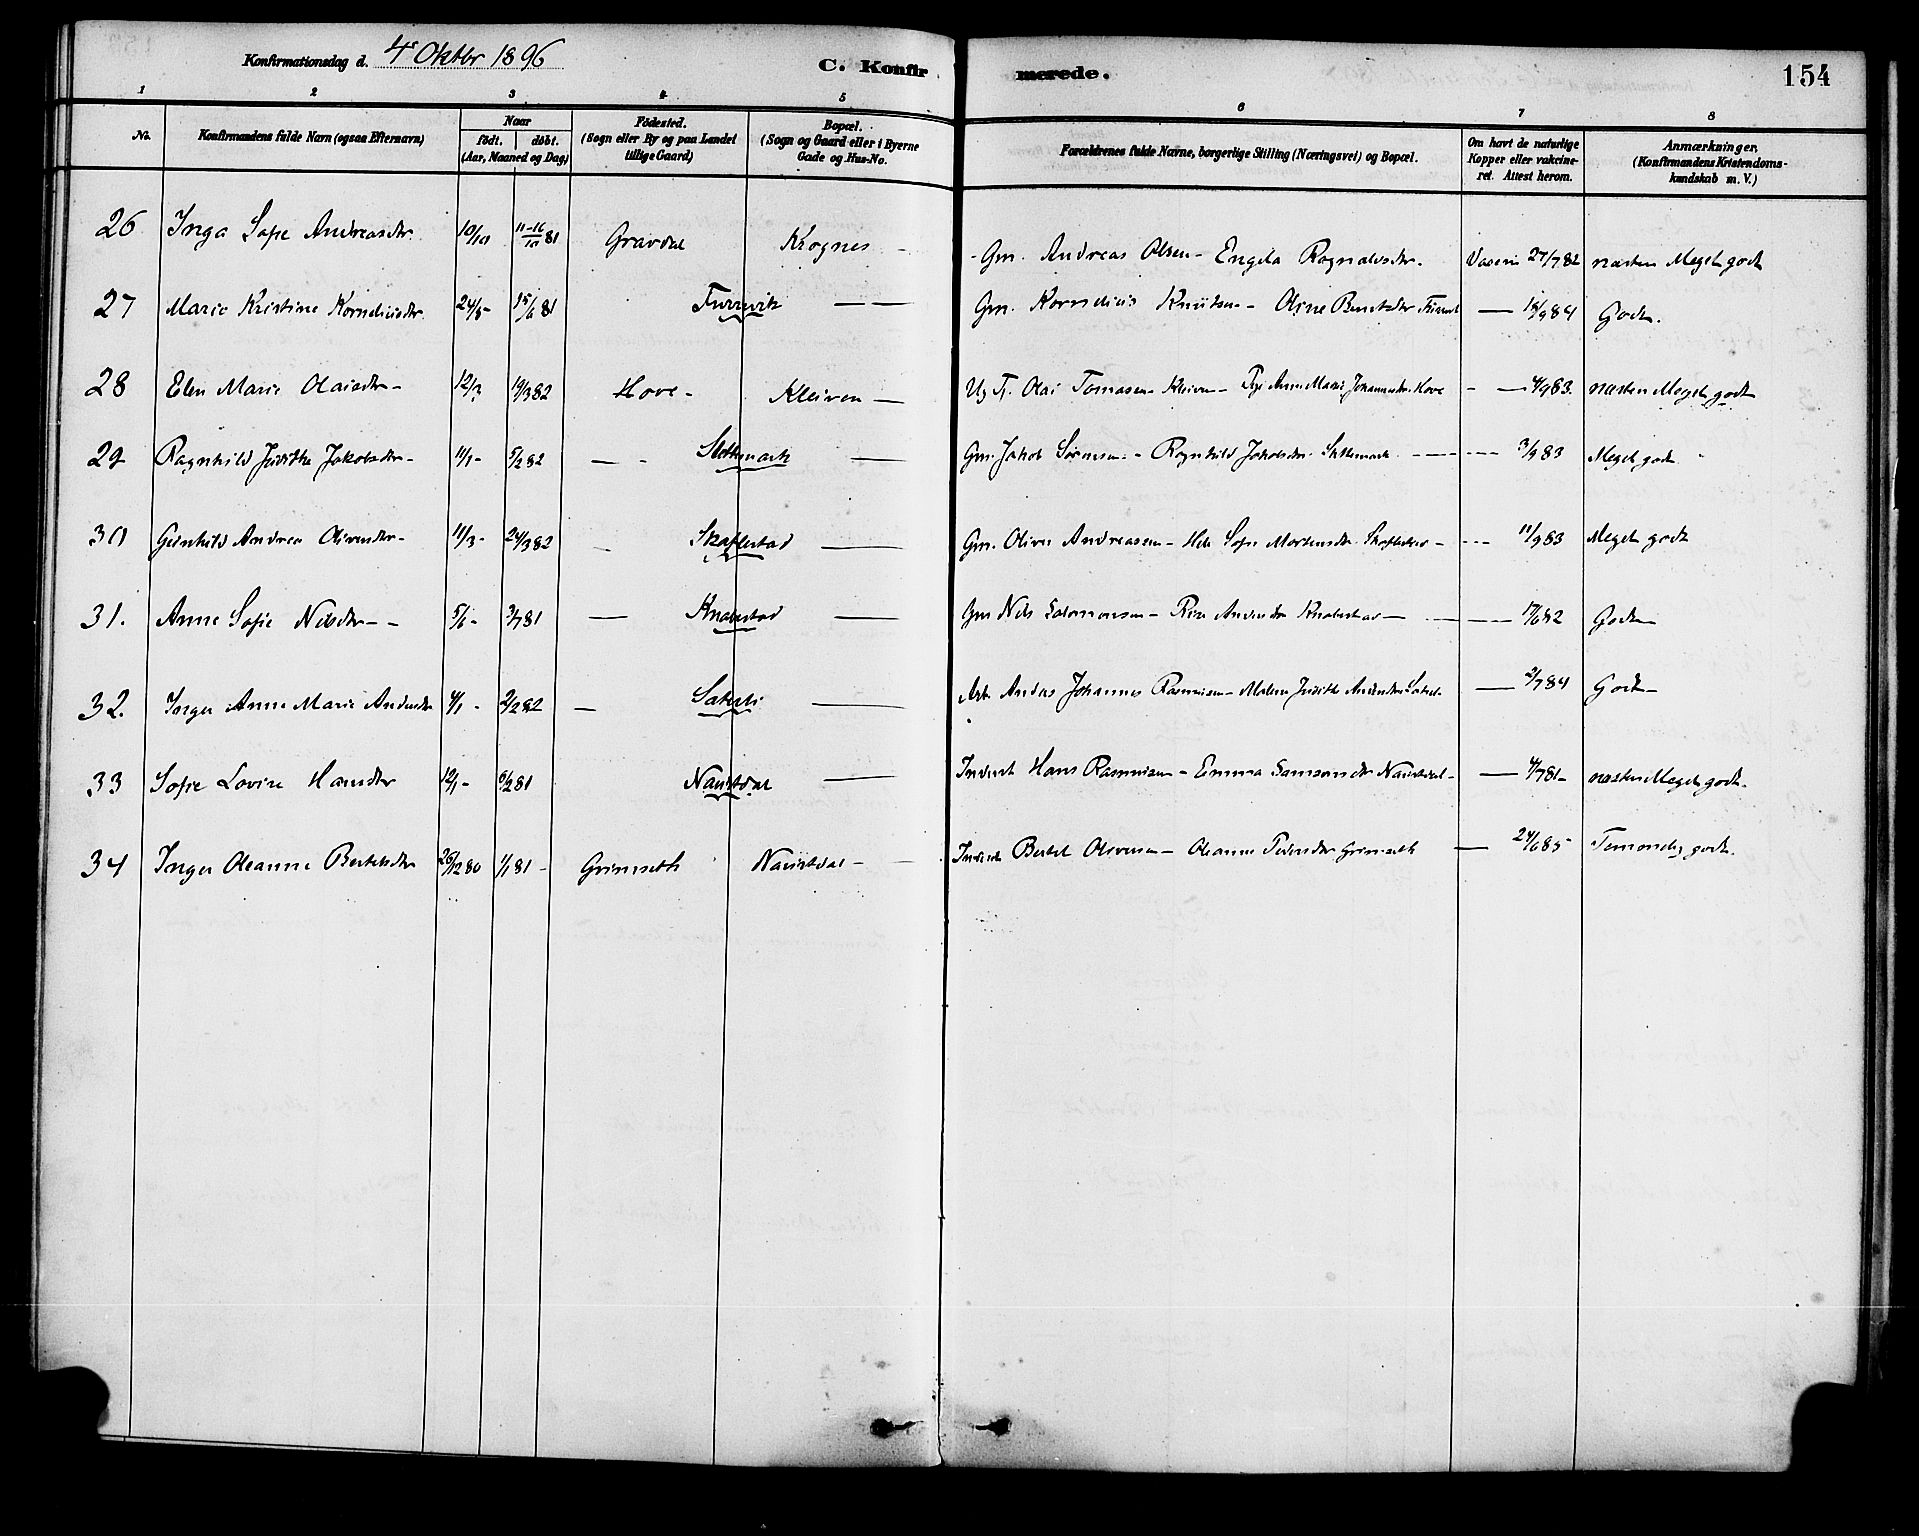 Konfirmationsdag d. 4 Oktbr 1896
C. Konfirmerede.
154
1 2 3 4 5 6 7 8
No. Konfirmandens fulde Navn (ogsaa Efternavn) Naar födt, döbt. (Aar, Maaned og Dag) Födested. (Sogn eller By og paa Landet tillige Gaard) Bopæl. (Sogn og Gaard eller i Byerne Gade og Hus-No. Forældrenes fulde Navne, borgerlige Stilling (Næringsvei) og Bopæl. Om havt de naturlige Kopper eller vakcineret. Attest herom. Anmærkninger. (Konfirmandens Kristendomskundskab m. V.)
26 Inga Sofie Andreasdtr. 10/10 11-16/10 81 Gravdal Krognes - Gm. Andreas Olsen - Engela Ragnaldsdtr. 27/7 82 næsten Meget godt
27 Marie Kristine Korneliusdtr. 24/5- 15/6 81 Furevik — — Gm. Kornelius Knutsen - Oline Bentsdtr — 18/9 84 Godt.
28 Elen Marie Olaisdtr - 12/3 19/3 82 Hove - Kleiven — Olai Tomasen - Kleiven - Anne Marie Johannesdtr. Hove - — 4/9 83. næsten Meget godt
29 Ragnhild Juditha Jakobsdtr - 11/1- 5/2 82 — - Slettemark — Gm. Jakob Sörensen - Ragnhild Jakobsdtr. Slettemark - - - - 3/9 83 Meget godt
30 Gunhild Andrea Oliversdtr - 11/3- 24/3 82 — Skaflestad — Gm. Oliver Andreasen - Sofie Mortensdtr. Skaflestad - - - - 11/9 83 Meget godt
31. Anne Sofie Nilsdtr - - 5/6- 3/7 81 — Knapstad — Gm Nils Salomonsen - Andersdtr Knapstad — - - - 17/6 82 Godt —
32. Inger Anne Marie Andersdtr 4/1 - 2/2 82 — — Anders Johannes Rasmusen - Malene Judithe Andersdtr — 2/7 84 Godt -
33 Sofie Lovise Hansdtr 12/1- 6/2 81 Naustdal — Inderst Hans Rasmusen - Emma Samsonsdtr Naustdal - — 4/7 81 - næsten Meget godt.
34 Inger Oleanne Bertelsdtr 26/12 80 1/1 81 - Grimseth Naustdal - - Inderst Bertel Oliversen - Oleanne Pedersdtr Grimseth — 24/6 85 Temmelig godt.